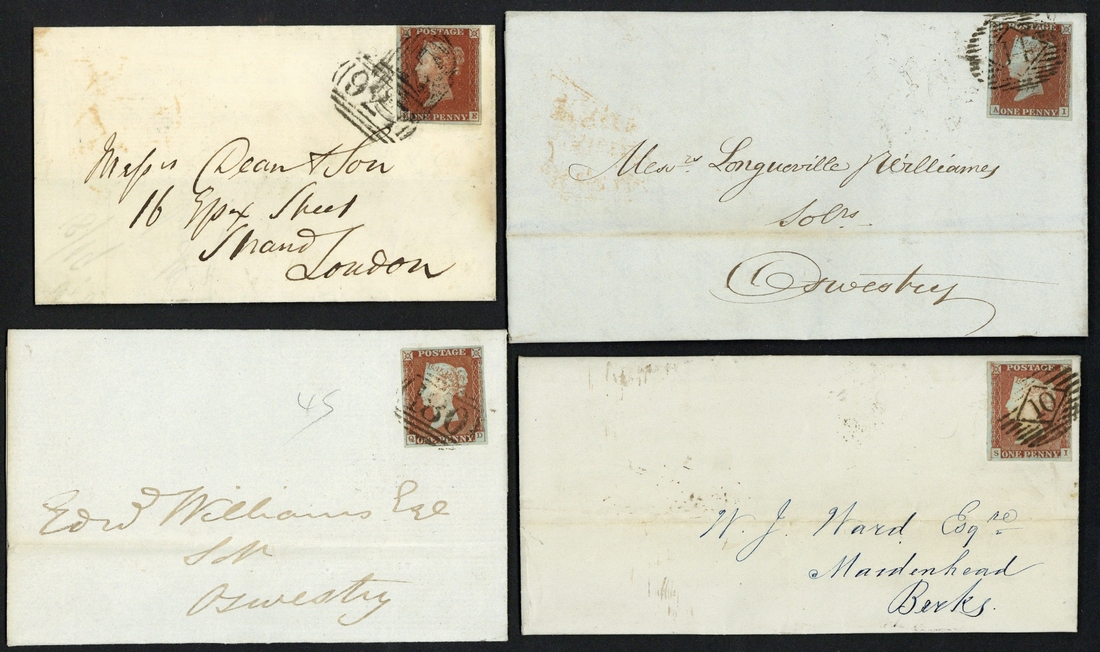 POSTAGE
ONE PENNY E
92
Messrs Dean & Son
16 Essex Street
Strand
London
A ONE PENNY I
Messrs. Longueville Williames
Solrs.
Oswestry
POSTAGE
Q ONE PENNY D
180
45
Edwd Williams Esqe
Solr
Oswestry
POSTAGE
S ONE PENNY I
10
W. J. Ward Esqre
Maidenhead
Berks.